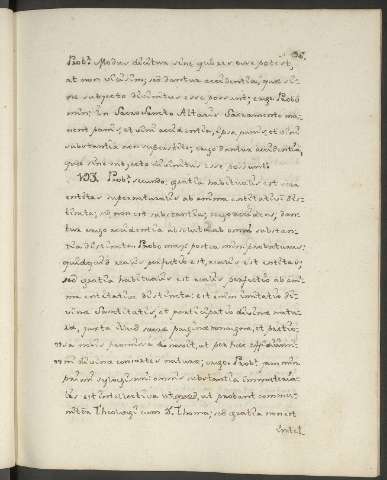 Prob.r Modus dicitur sine quo res esse potest,
at non vicissim; sed dantur accidentia, quæ si-
ne subjecto divinitus esse possunt; ergo Probo
min: in SacroSancto Altaris Sacramento ma-
nent panis, et vini accidentia, ipsa panis, et vini
substantia non superstite; ergo dantur accidentia,
quæ sine subjecto divinitus esse possunt.
Prob.r secundo; gratia habitualis est vera
entitas supernaturalis ab anima entitativè dis-
tincta; sed non est substantia; ergo accidens; dan-
tur ergo accidentia absoluta ab omni substan-
tia distincta. Probo maj: postea min: probaturus;
quidquid realis perfectio est, realis est entitas;
sed gratia habitualis est realis perfectio ab ani-
ma entitativè distincta: est enim imitatio di-
vinæ Sanctitatis, et participatio divinæ natu-
ræ, juxta illud sacræ paginæ et pretio-
sa nobis promissa donavit, ut per hæc
divinæ consortes naturæ; ergo Prob.r jam min:
primi syllogismi: omnis substantia immateria-
lis est intellectiva ut probant commu-
niter Theologi cum D. Thoma; sed gratia non est
intel-